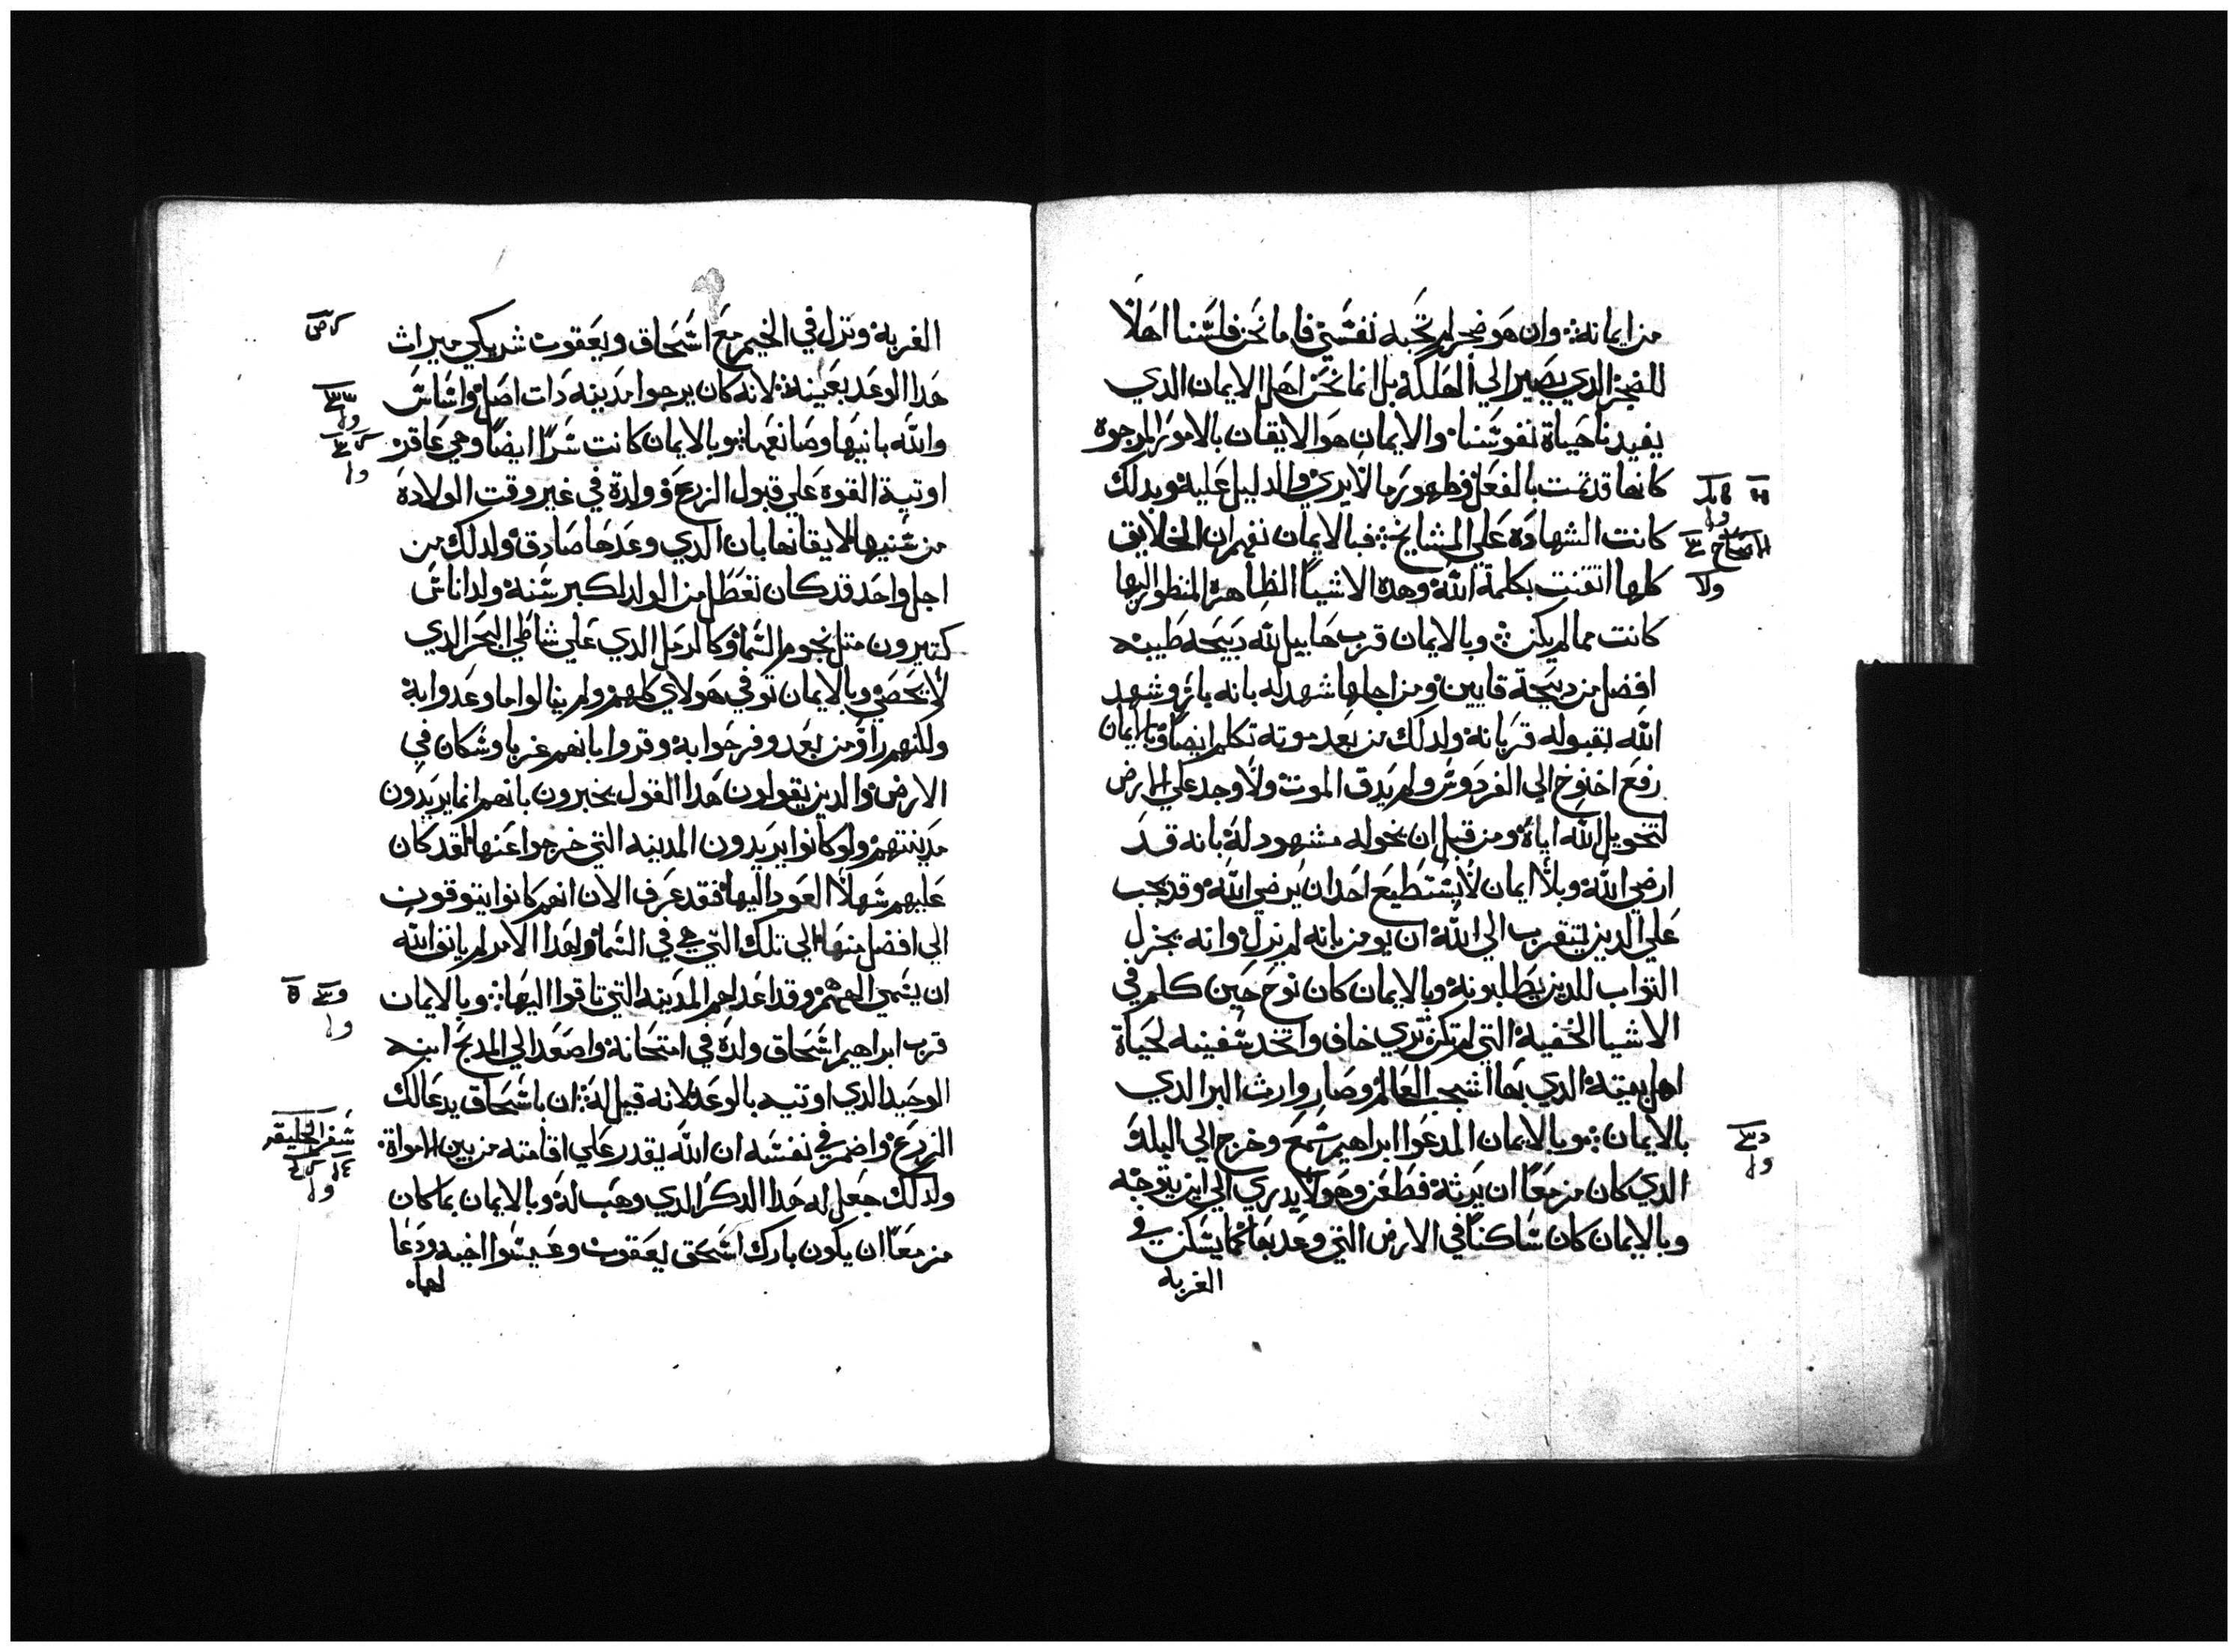 من ايمانه؛ وان هو ضجر لم تحبه نفسي فاما نحن فلسنا اهلا
للضجر الدي يصير الي الهلكة بل انما نحن اهل الايمان الدي
يفيدنا حياة نفوسنا؛ والايمان هو الايقان بالامور المرجوه
كانها قد تمت بالفعل وظهور ما لا يري والدليل عليه وبدلك
كانت الشهاده علي المشايخ؛ فبالايمان نفهم ان الخلايق
كلها اتقنت بكلمة الله وهده الاشيا الظاهرة المنظور اليها
كانت مما لم يكن؛ وبالايمان قرب هابيل لله دبيحه طيبه
افضل من دبيحة قايين ومن اجلها شهد له بانه بار وشهد
الله بقبوله قربانه ولدلك من بعد موته تكلم ايضا وبالايمان
رفع اخنوخ الي الفردوس ولم يدق الموت ولا وجد علي الارض
لتحويل الله اياه ومن قبل ان يحوله مشهود له بانه قد
ارضي الله وبلا ايمان لا يستطيع احد ان يرضي الله وقد يجب
علي الدين يتقرب الي الله ان يومن بانه لم يزل وانه يجزل
التواب للدين يطلبونه وبالايمان كان نوح حين كلم في
الاشيا الخفيه التي لم تكن تري خاف واتخد سفينه لحياة
اهل بيته الدي بها اشجب العالم وصار وارث البر الدي
بالايمان؛ وبالايمان المدعوا ابراهيم سمع وخرج الي البلد
الدي كان مزمعا ان يرثه فظعن وهو لا يدري الي اين يتوجه
وبالايمان كان ساكنا في الارض التي وعد بها كما يسكن في
الغربه
الاصحاح
الغربه ونزل في الخيم مع اسحاق ويعقوب شريكي ميراث
هدا الوعد بعينه؛ لانه كان يرجوا مدينه دات اصل واساس
والله بانيها وصانعها؛ وبالايمان كانت سرا ايضا وهي عاقر
اوتيت القوه علي قبول الزرع وولدة في غير وقت الولادة
من سنيها لايقانها بان الدي وعدها صادق ولدلك من
اجل واحد قد كان تعطل من الولد لكبر سنه ولد اناس
كتيرون متل نجوم السما وكالرمل الدي علي شاطي البحر الدي
لا يحصي وبالايمان توفي هولاي كلهم ولم ينالوا ما وعدوا به
ولكنهم راوه من بعد وفرحوا به وقروا بانهم غربا وسكان في
الارض والدين يقولون هدا القول يخبرون بانهم انما يريدون
مدينتهم ولو كانوا يريدون المدينه التي خرجوا عنها لقد كان
عليهم سهلا العود اليها فقد عرف الان انهم كانوا يتوقون
الي افضل منها الي تلك التي هي في السما ولهدا الامر لم يانف الله
ان يسمي الههم وقد اعد لهم المدينه التي تاقوا اليها؛ وبالايمان
قرب ابراهيم اسحاق ولده في امتحانه واصعد الي المدبح ابنه
الوحيد الدي اوتيه بالوعد لانه قيل له؛ ان باسحاق يدعا لك
الزرع واضمر في نفسه ان الله يقدر علي اقامته من بين الامواة
ولدلك جعل له هدا الدكر الدي وهب له وبالايمان بما كان
مزمعا ان يكون بارك اسحق ليعقوب وعيسوا اخيه ودعا
لهما
سفر الخليقه